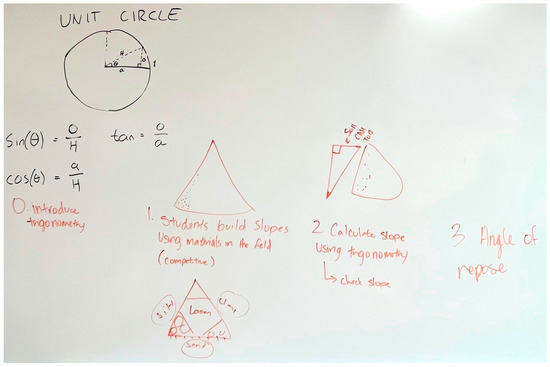 UNIT CIRCLE
H
θ
a
1
sin(θ) = O/H
tan = O/a
cos(θ) = a/H
0. introduce trigonometry
1. Students build slopes
Using materials in the field
(competitive)
2 Calculate slope
using trigonometry
↳ check slope
3 Angle of
repose
Loam
Sand